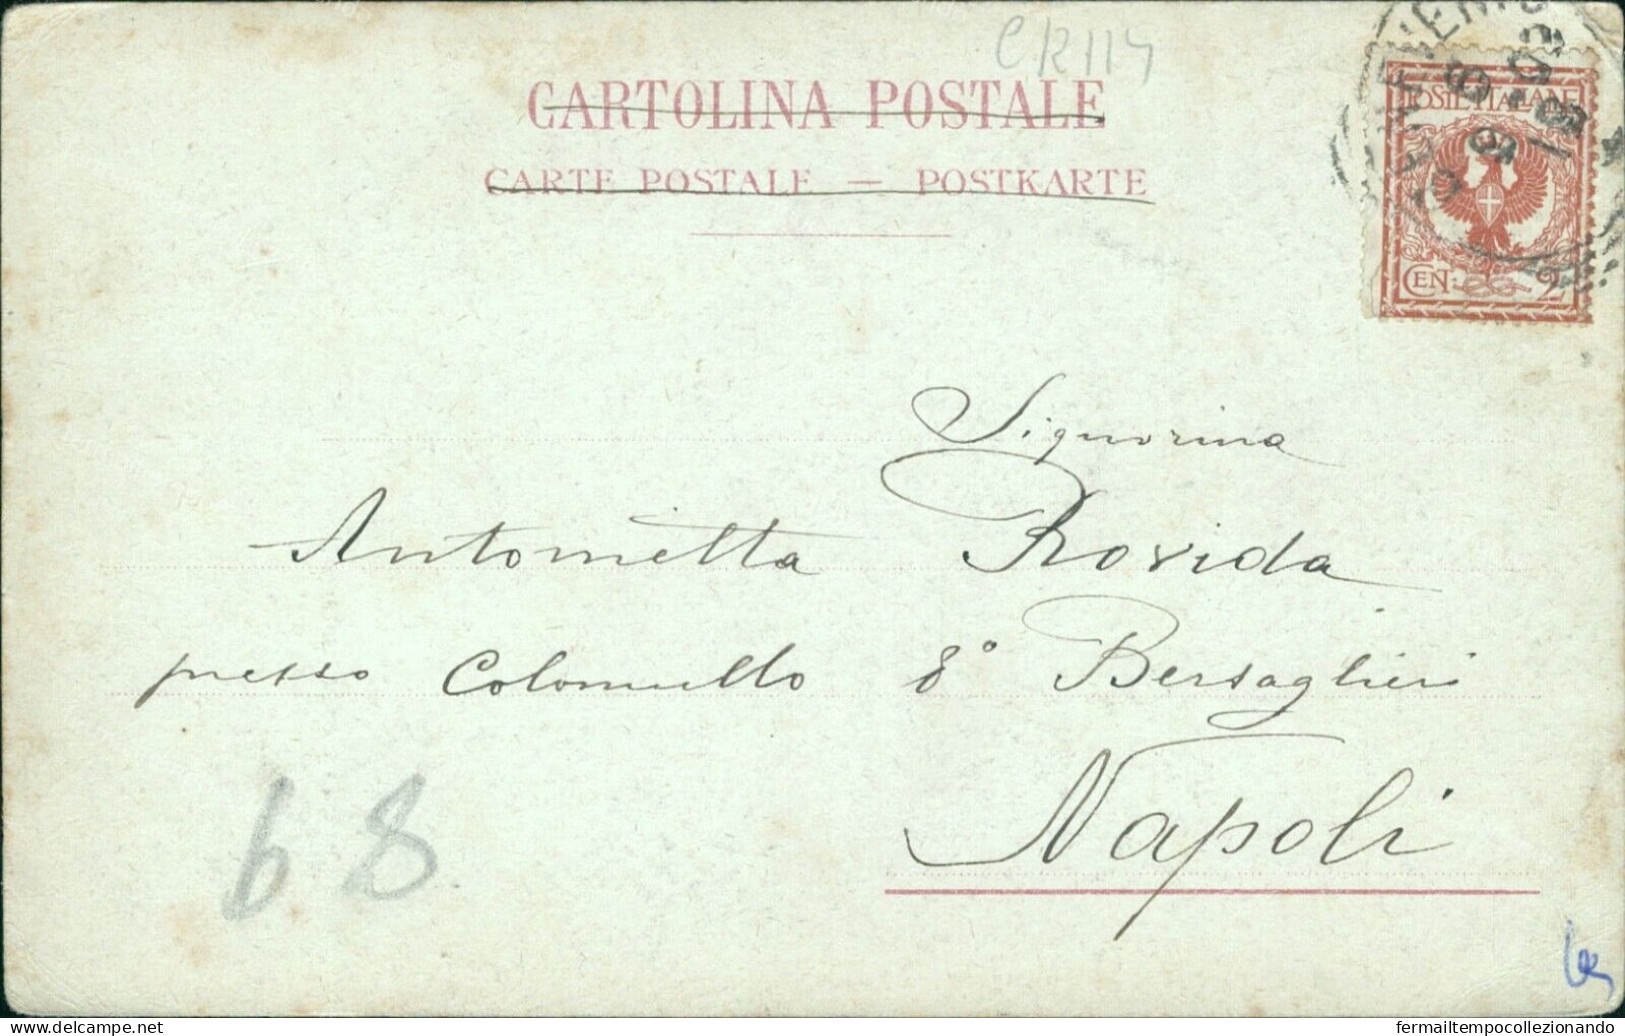 CR114
CARTOLINA POSTALE
CARTE POSTALE — POSTKARTE
BENEVENTO
POSTE ITALIANE
CEN: 2
Signorina
Antonietta Rovida
presso Colonnello 8° Bersaglieri
Napoli
68
delcampe.net
fermailtempocollezionando